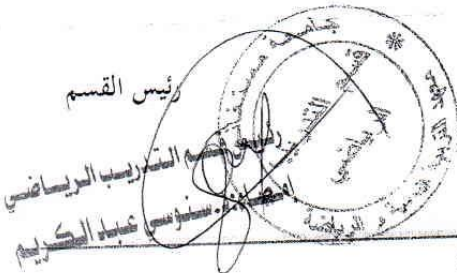 رئيس القسم
رئيس قسم التدريب الرياضي
إمضاء: سنوسي عبد الكريم
جامعة مستغانم
معهد التربية البدنية و الرياضية
قسم التدريب
الرياضي